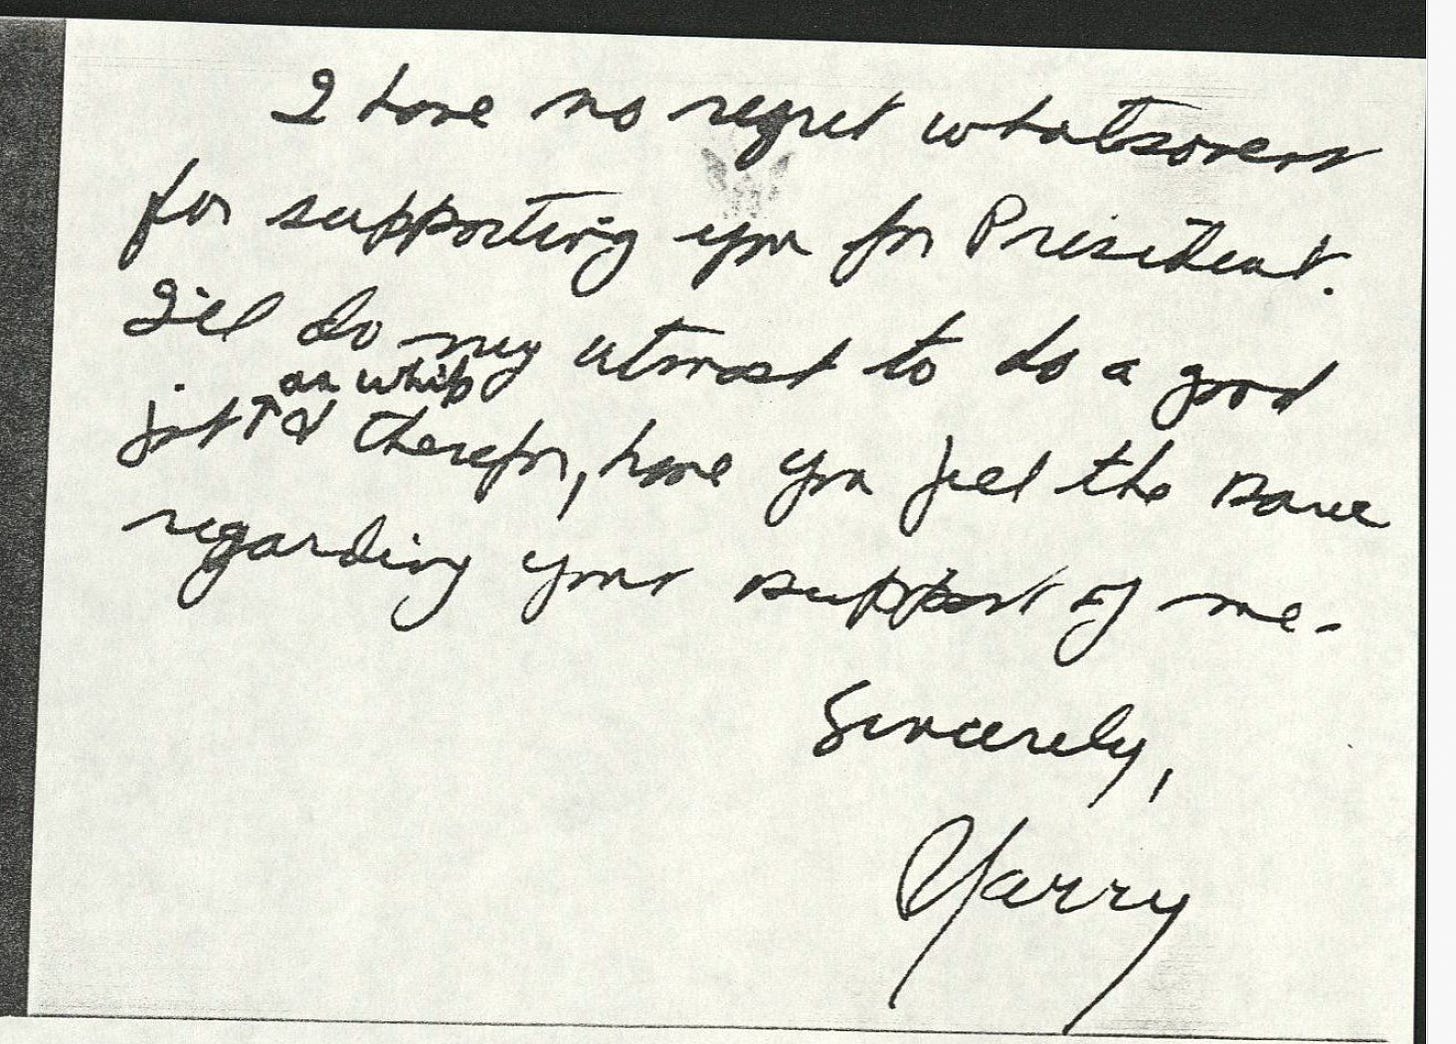 I have no regret whatsoever
for supporting you for President.
I'll do my utmost to do a good
as whip
job ↑ & therefor, have you feel the same
regarding your support of me.
Sincerely,
Harry